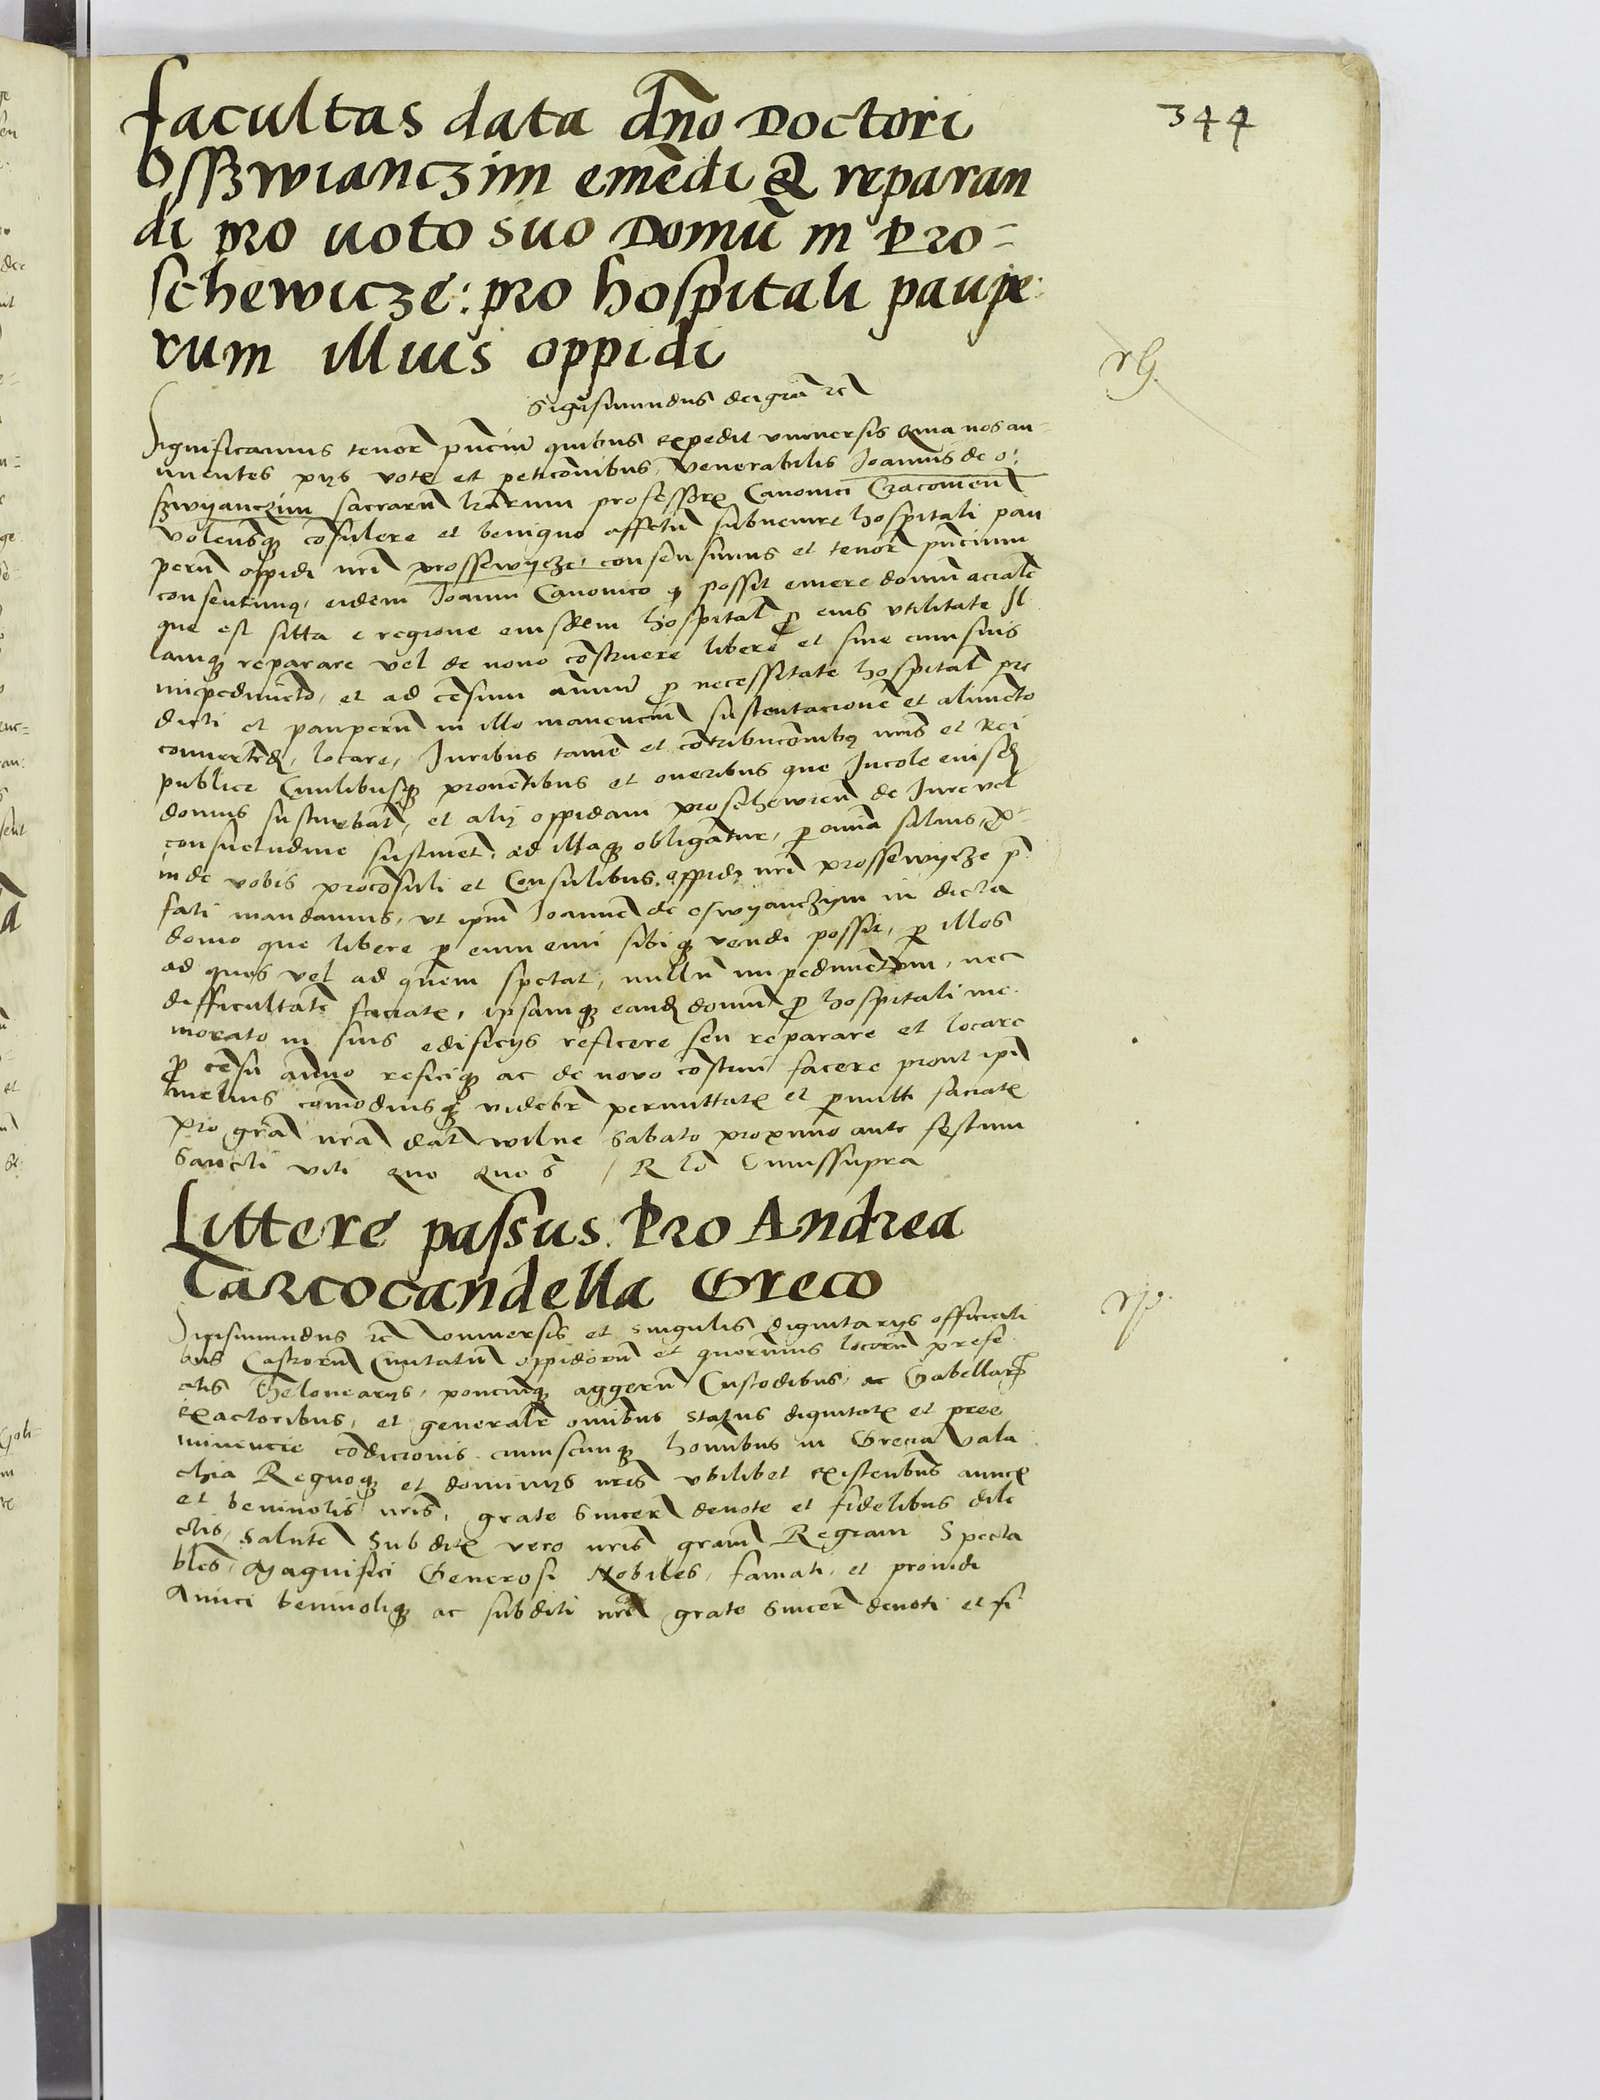 344
facultas data dno Doctori
Osszwianczim emēdi & reparan
di pro uoto suo Domū in Pro-
schewicze: pro hospitali paupe
rum illius oppidi
Sigismundus dei gra rex
Significamus tenor pncium quibus expedit vniuersis Quia nos an-
nuentes pijs votis et peticonibus, Venerabilis Joannis de O:
szwyanczim sacrarum lrarum professoris Canonici Cracouien
volensque cosulere et benigno affectu subuenire hospitali pau
perum oppidi nri prossewycze, consensimus et tenor pncium
consentimus, eidem Joanni Canonico q possit emere domum acialem
que est sitta e regione eiusdem hospital p eius vtilitate Il
lamque reparare vel de nouo costruere libere et sine cuiusuis
impedimeto, et ad censum annuu p necessitate hospital pre
dicti et pauperum in illo manencium sustentacione et alimeto
conuertedu, locare, Iuribus tame et cotribucombus nris et Rei
publice Ciuilibusque prouetibus et oneribus que Incole eiusd
domus sustinebat, et alij oppidani proschewicen de Iure vel
consuetudine sustinent, ad illaque obligantur, p omnia saluis,
inde vobis proconsuli et Consulibus oppidi nri prossewycze p
fati mandamus, vt ipm Joannem de Oswyanczym in dicta
domo que libere p eum emi sibique vendi possit, p illos
ad quos vel ad quem spectat, nullum impedimentum, nec
difficultatem faciatis, ipsamque eand domum p hospitali me
morato in suis edificijs reficere seu reparare et locare
p cesu annuo reficique ac de nouo costrui facere prout ipi
melius comodiusque videbr permittatis et pmitti faciatis
Pro gra nra dat wilne Sabato proximo ante festum
Sancti viti Quo Quo s / R lo Cuiussupra
Littere passus Pro Andrea
Tarcocandella Greco
Sigismundus rex vniuersis et singulis dignitarijs officiali
bus Castrorum Ciuitatum oppidorum et quorumuis locorum prefe
ctis Theloncarijs, ponciumque aggerum Custodibus, ac Gabellarum
exactoribus, et generaliter omibus status dignitatis et pree
minencie condicionis cuiuscunque homibus in Grecia vala
chia Regnoque et dominijs nris vbilibet existentibus amicis
et beniuolis nris, grate Sincere deuote et fidelibus dile
ctis, Salutem Subditis vero nris gram Regiam Specta
biles, Magnifici Generosi Nobiles, famati, et prouidi
Amici beniuolique ac subditi nri grate Sincere deuoti et fi